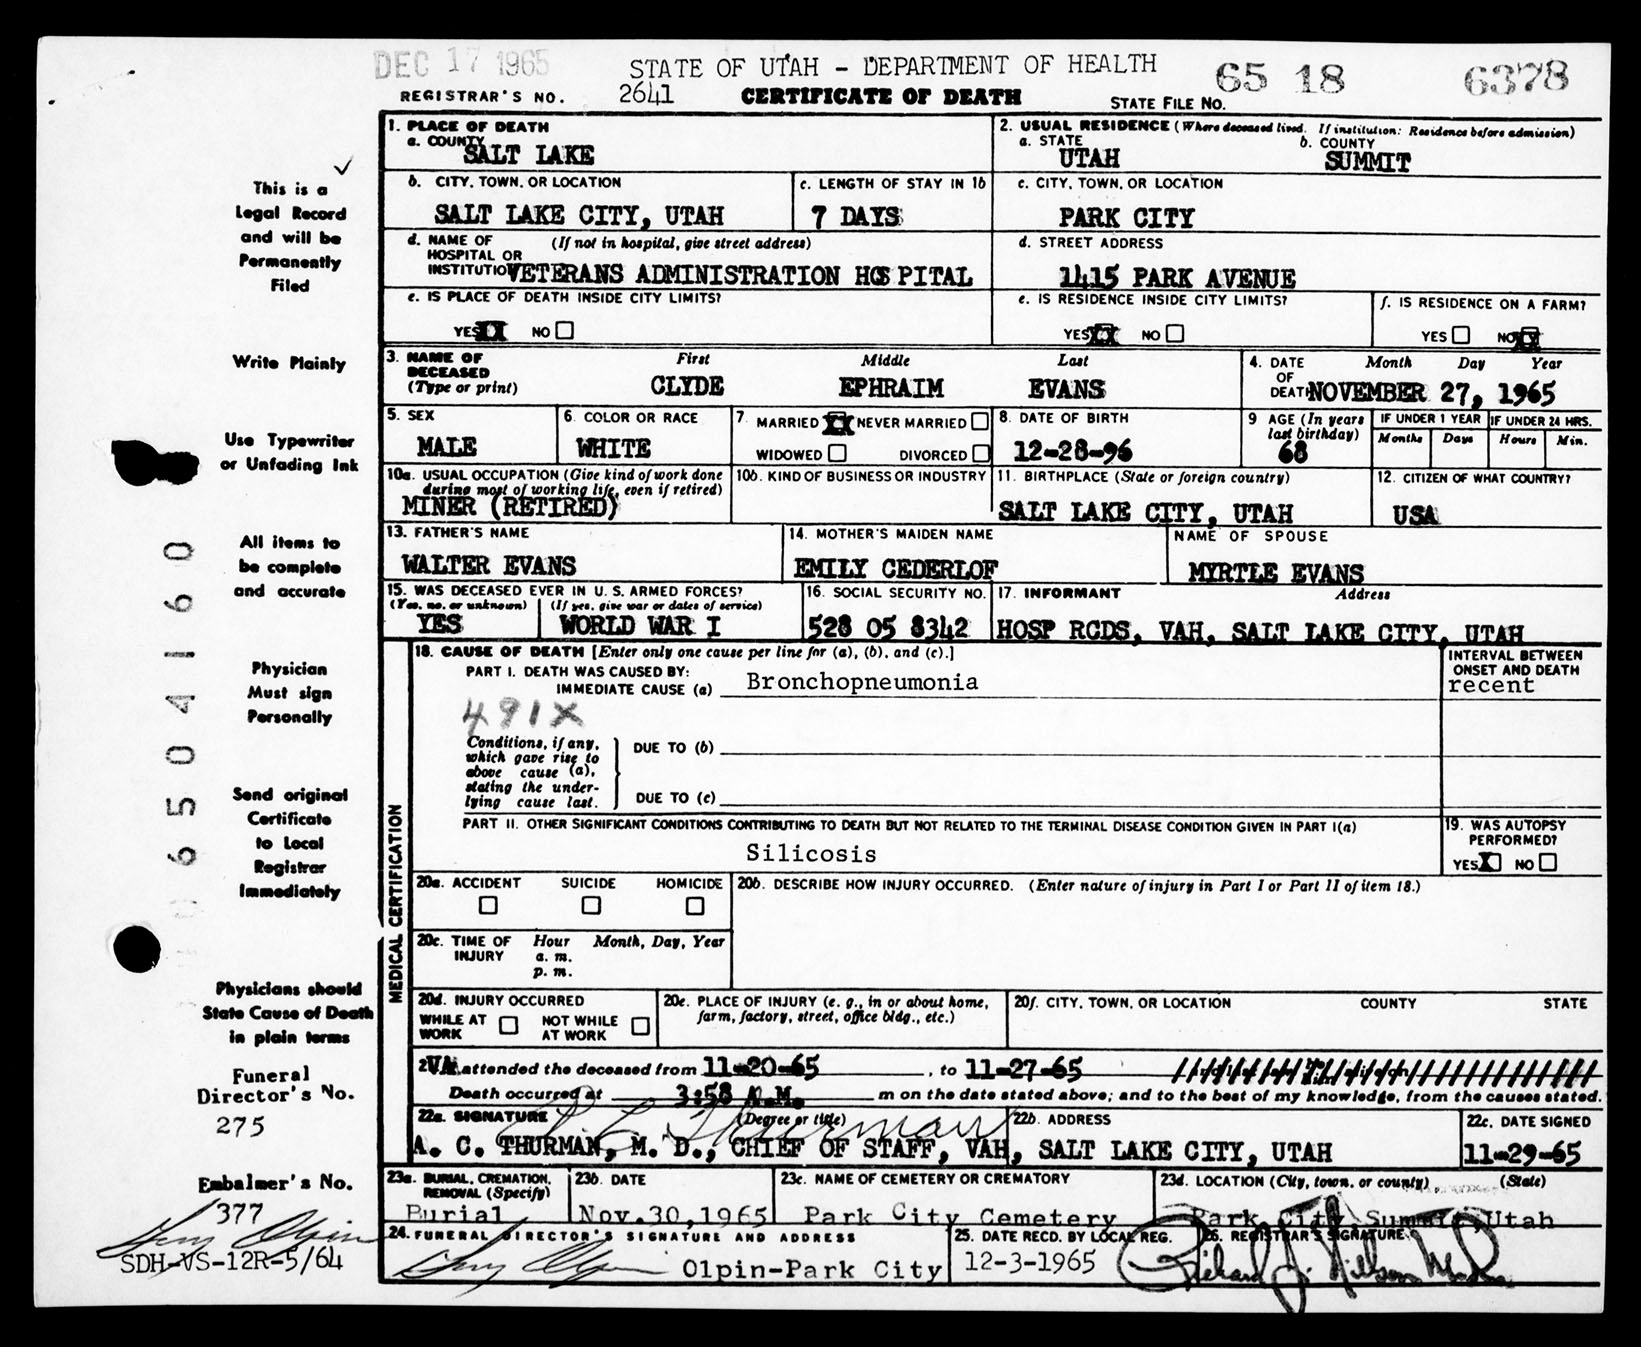 DEC 17 1965
STATE OF UTAH - DEPARTMENT OF HEALTH
65 18 6378
REGISTRAR'S NO. 2641 CERTIFICATE OF DEATH STATE FILE NO.
This is a
Legal Record
and will be
Permanently
Filed
Write Plainly
Use Typewriter
or Unfading Ink
All items to
be complete
and accurate
Physician
Must sign
Personally
Send original
Certificate
to Local
Registrar
Immediately
Physicians should
State Cause of Death
in plain terms
Funeral
Director's No.
275
Embalmer's No.
377
SDH-VS-12R-5/64
650 4160
1. PLACE OF DEATH
a. COUNTY
SALT LAKE
2. USUAL RESIDENCE (Where deceased lived. If institution: Residence before admission)
a. STATE b. COUNTY
UTAH SUMMIT
b. CITY, TOWN, OR LOCATION
SALT LAKE CITY, UTAH
c. LENGTH OF STAY IN 1b
7 DAYS
c. CITY, TOWN, OR LOCATION
PARK CITY
d. NAME OF (If not in hospital, give street address)
HOSPITAL OR
INSTITUTION VETERANS ADMINISTRATION HOSPITAL
d. STREET ADDRESS
1415 PARK AVENUE
e. IS PLACE OF DEATH INSIDE CITY LIMITS?
YES XX NO
e. IS RESIDENCE INSIDE CITY LIMITS?
YES XX NO
f. IS RESIDENCE ON A FARM?
YES NO XX
3. NAME OF First Middle Last
DECEASED
(Type or print) CLYDE EPHRAIM EVANS
4. DATE Month Day Year
OF
DEATH NOVEMBER 27, 1965
5. SEX
MALE
6. COLOR OR RACE
WHITE
7. MARRIED XX NEVER MARRIED
WIDOWED DIVORCED
8. DATE OF BIRTH
12-28-96
9 AGE (In years
last birthday)
68
IF UNDER 1 YEAR IF UNDER 24 HRS.
Months Days Hours Min.
10a. USUAL OCCUPATION (Give kind of work done
during most of working life, even if retired)
MINER (RETIRED)
10b. KIND OF BUSINESS OR INDUSTRY
11. BIRTHPLACE (State or foreign country)
SALT LAKE CITY, UTAH
12. CITIZEN OF WHAT COUNTRY?
USA
13. FATHER'S NAME
WALTER EVANS
14. MOTHER'S MAIDEN NAME
EMILY CEDERLOF
NAME OF SPOUSE
MYRTLE EVANS
15. WAS DECEASED EVER IN U. S. ARMED FORCES?
(Yes, no, or unknown) (If yes, give war or dates of service)
YES WORLD WAR I
16. SOCIAL SECURITY NO.
528 05 8342
17. INFORMANT Address
HOSP RCDS, VAH, SALT LAKE CITY, UTAH
MEDICAL CERTIFICATION
18. CAUSE OF DEATH [Enter only one cause per line for (a), (b), and (c).]
PART I. DEATH WAS CAUSED BY:
IMMEDIATE CAUSE (a) Bronchopneumonia
INTERVAL BETWEEN
ONSET AND DEATH
recent
491X
Conditions, if any,
which gave rise to
above cause (a),
stating the under-
lying cause last.
DUE TO (b)
DUE TO (c)
PART II. OTHER SIGNIFICANT CONDITIONS CONTRIBUTING TO DEATH BUT NOT RELATED TO THE TERMINAL DISEASE CONDITION GIVEN IN PART I(a)
Silicosis
19. WAS AUTOPSY
PERFORMED?
YES X NO
20a. ACCIDENT SUICIDE HOMICIDE
20b. DESCRIBE HOW INJURY OCCURRED. (Enter nature of injury in Part I or Part II of item 18.)
20c. TIME OF Hour Month, Day, Year
INJURY a. m.
p. m.
20d. INJURY OCCURRED
WHILE AT NOT WHILE
WORK AT WORK
20e. PLACE OF INJURY (e. g., in or about home,
farm, factory, street, office bldg., etc.)
20f. CITY, TOWN, OR LOCATION COUNTY STATE
2 VA attended the deceased from 11-20-65, to 11-27-65
Death occurred at 3:58 A.M. m on the date stated above; and to the best of my knowledge, from the causes stated.
22a. SIGNATURE (Degree or title)
A C Thurman
A. C. THURMAN, M. D., CHIEF OF STAFF, VAH, SALT LAKE CITY, UTAH
22b. ADDRESS
22c. DATE SIGNED
11-29-65
23a. BURIAL, CREMATION,
REMOVAL (Specify)
Burial
23b. DATE
Nov.30,1965
23c. NAME OF CEMETERY OR CREMATORY
Park City Cemetery
23d. LOCATION (City, town, or county) (State)
Park City, Summit, Utah
24. FUNERAL DIRECTOR'S SIGNATURE AND ADDRESS
Olpin-Park City
25. DATE RECD. BY LOCAL REG.
12-3-1965
26. REGISTRAR'S SIGNATURE